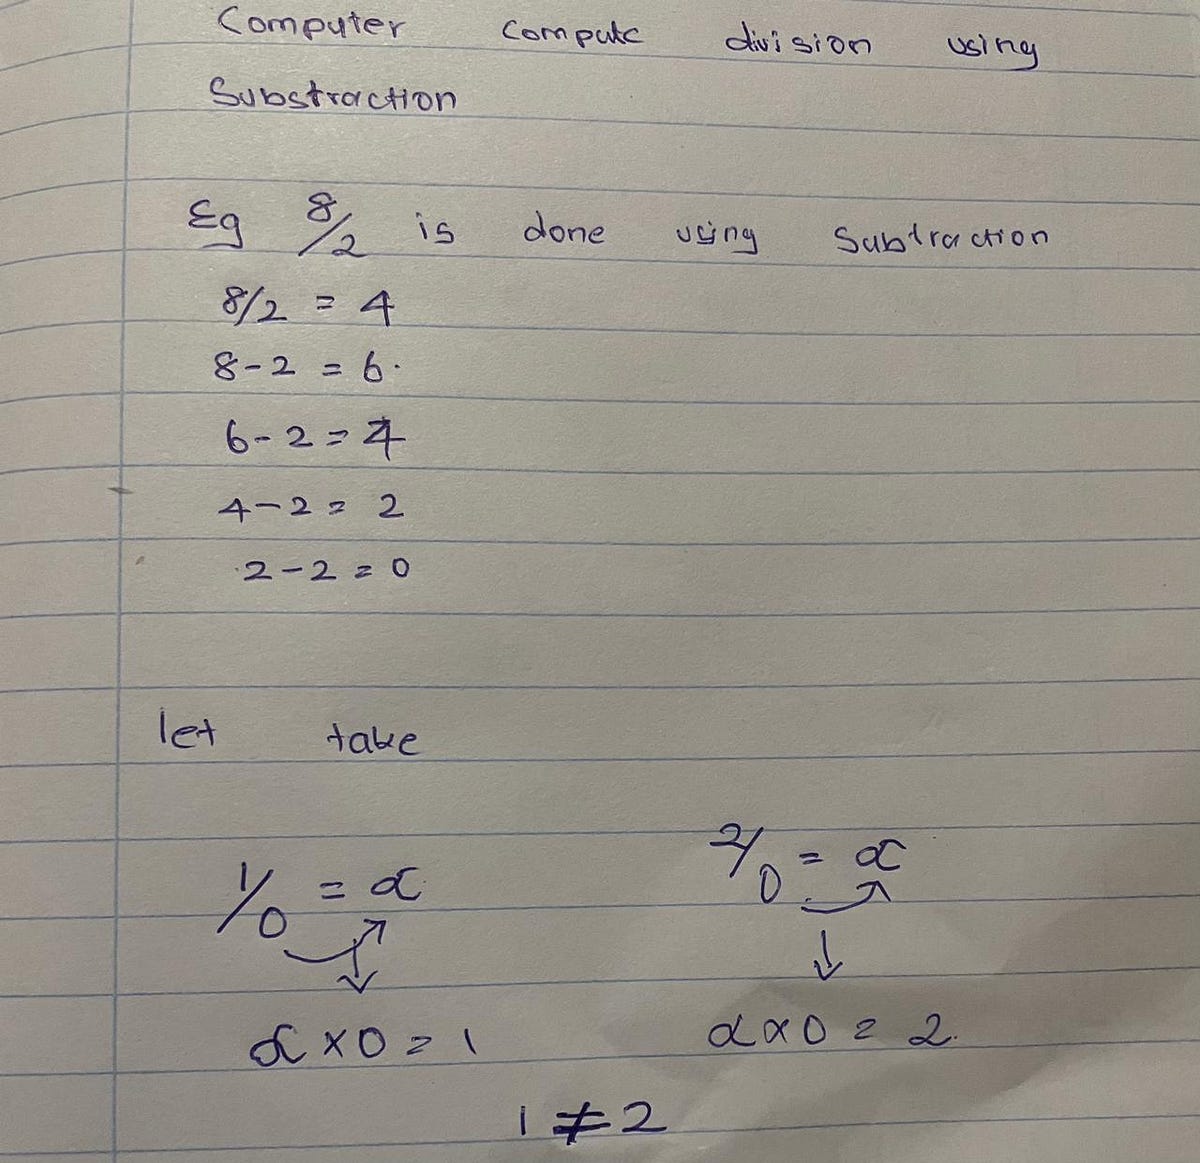 Computer Compute division using
Substraction
Eg 8/2 is done using Subtraction
8/2 = 4
8-2 = 6.
6-2 = 4
4-2 = 2
2-2 = 0
let take
1/0 = ∝ 2/0 = ∝
∝ × 0 = 1 ∝ × 0 = 2.
1 ≠ 2